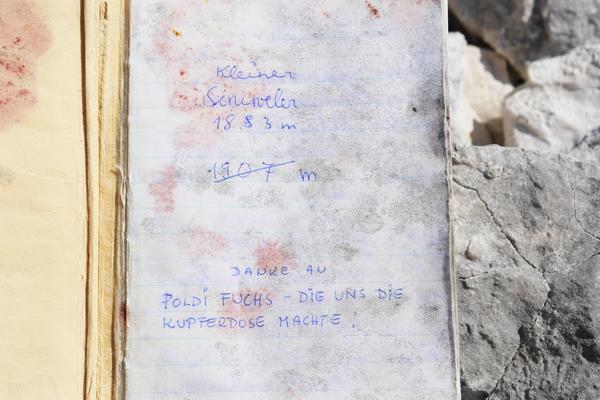 Kleiner
1883 m
1907 m
DANKE AN
POLDi FUCHS - DiE UNS DiE
KUPFERDOSE MACHTE !